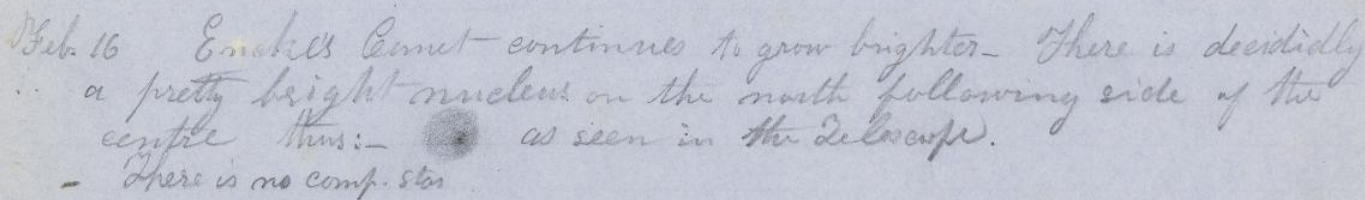 Feb. 16 Encke's Comet continues to grow brighter- There is decididly
a pretty bright nucleus on the north following side of the
centre thus:- as seen in the Telescope.
- There is no comp. star